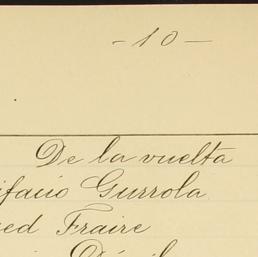 - 10 -
De la vuelta
ifacio Gurrola
ed Fraire